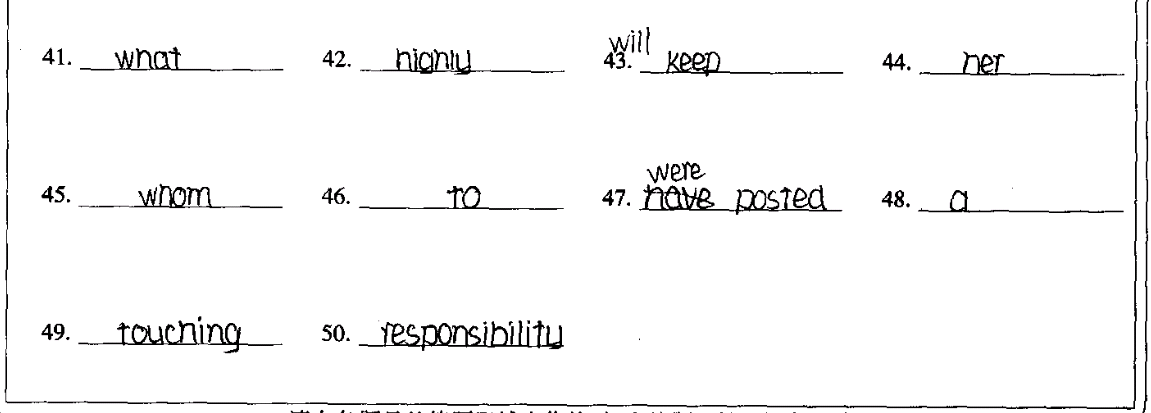 41. what 42. highly 43. will keep 44. her
were
45. whom 46. to 47. have posted 48. a
49. touching 50. responsibility